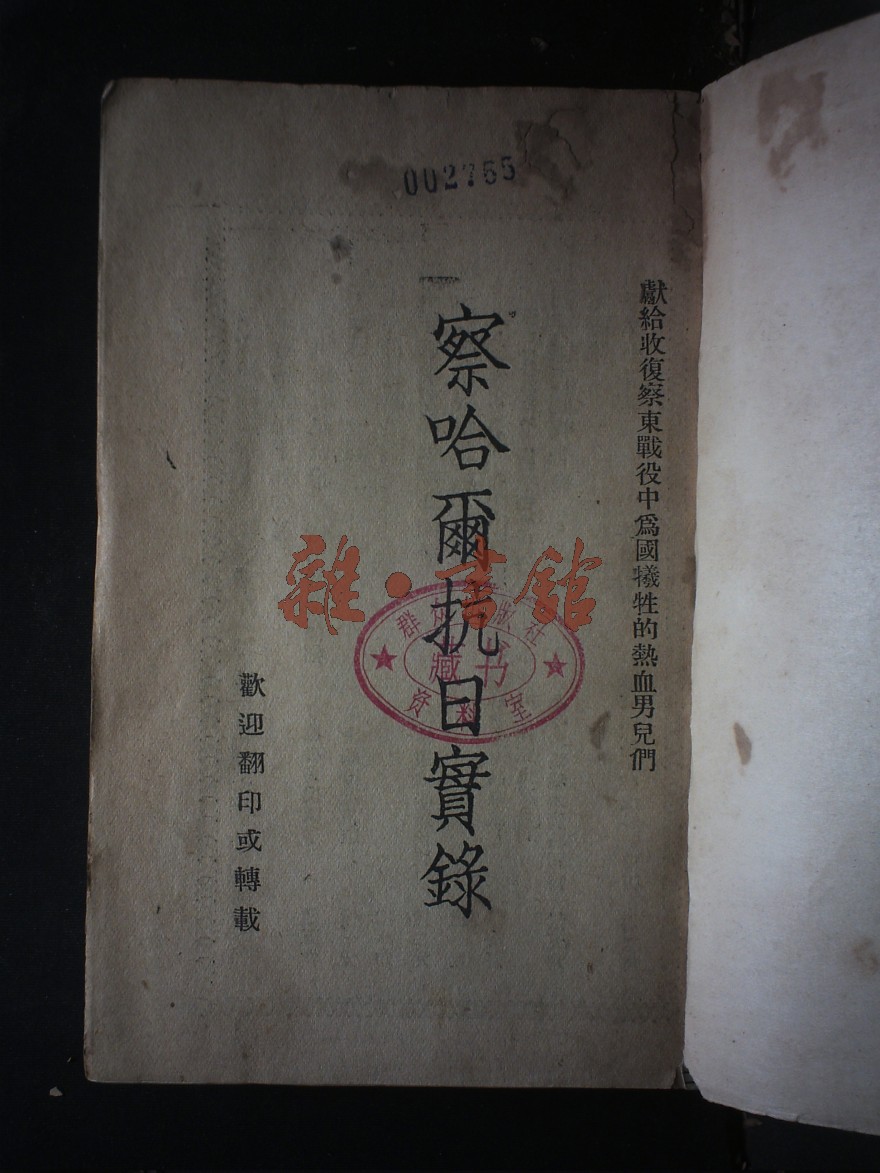 002755
獻給收復察東戰役中爲國犧牲的熱血男兒們
察哈爾抗日實錄
歡迎翻印或轉載
雜·書館
群众出版社
藏书
资料室